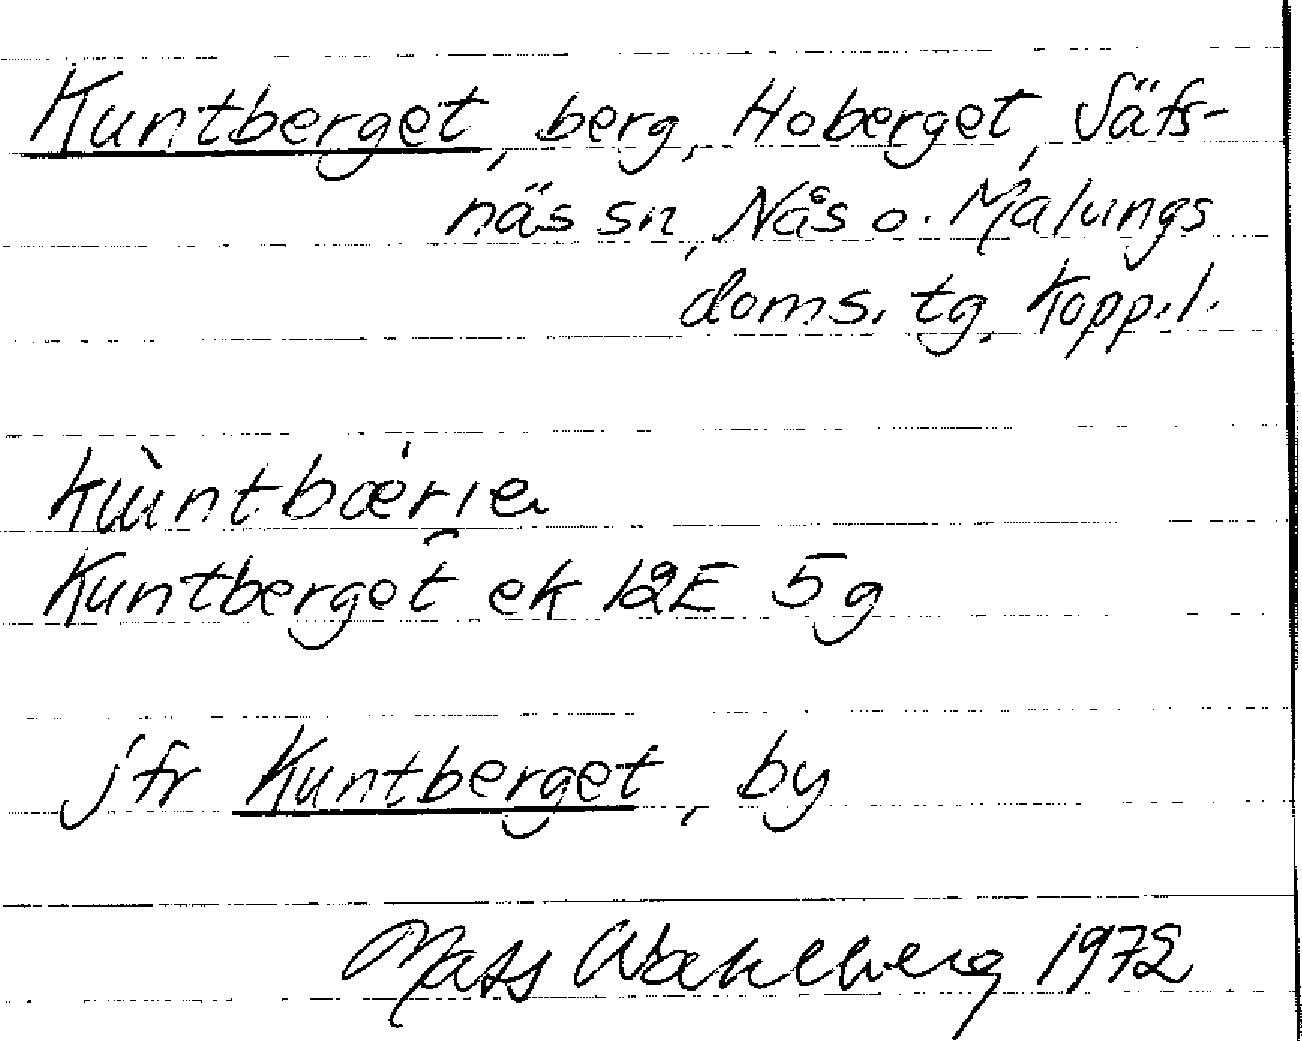 Kuntberget, berg, Hoberget, Säfs-
näs sn, Nås o. Malungs
doms. tg, Kopp.l.
Kuntberget ek 12E 5g
jfr Kuntberget, by
Mats Wahlberg 1972